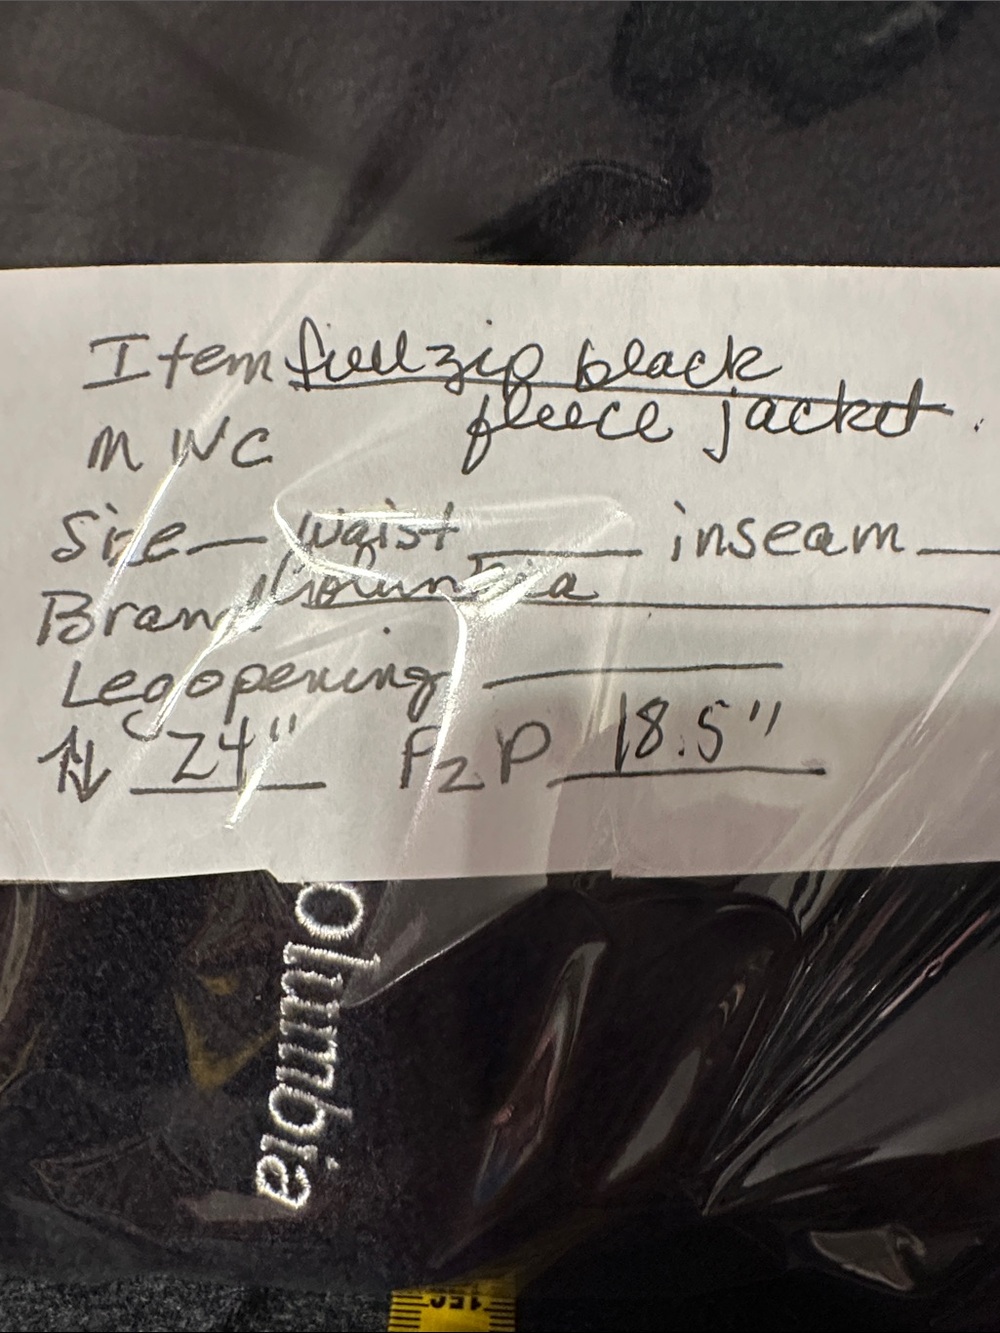 Item full zip black
fleece jacket.
M W C
Size Waist inseam
Brand Columbia
Leg opening
↑↓ 24" P2P 18.5"
olumbia
150